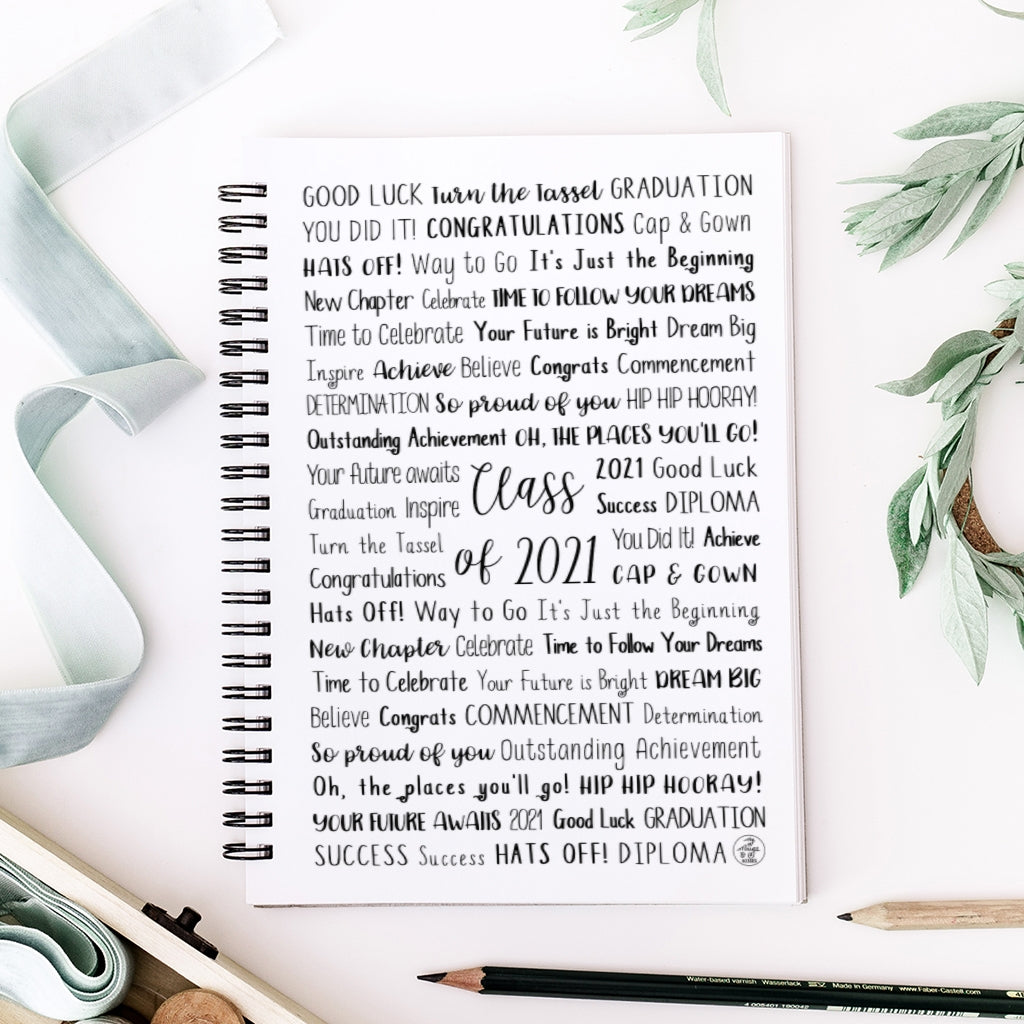 GOOD LUCK Turn the Tassel GRADUATION
YOU DID IT! CONGRATULATIONS Cap & Gown
HATS OFF! Way to Go It's Just the Beginning
New Chapter Celebrate TIME TO FOLLOW YOUR DREAMS
Time to Celebrate Your Future is Bright Dream Big
Inspire Achieve Believe Congrats Commencement
DETERMINATION So proud of you HIP HIP HOORAY!
Outstanding Achievement OH, THE PLACES YOU'LL GO!
Your future awaits
Graduation Inspire
Class
2021 Good Luck
Success DIPLOMA
Turn the Tassel
Congratulations
of 2021
You Did It! Achieve
CAP & GOWN
Hats Off! Way to Go It's Just the Beginning
New Chapter Celebrate Time to Follow Your Dreams
Time to Celebrate Your Future is Bright DREAM BIG
Believe Congrats COMMENCEMENT Determination
So proud of you Outstanding Achievement
Oh, the places you'll go! HIP HIP HOORAY!
YOUR FUTURE AWAITS 2021 Good Luck GRADUATION
SUCCESS Success HATS OFF! DIPLOMA
Water-based varnish Wasserlack Made in Germany www.Faber-Castell.com